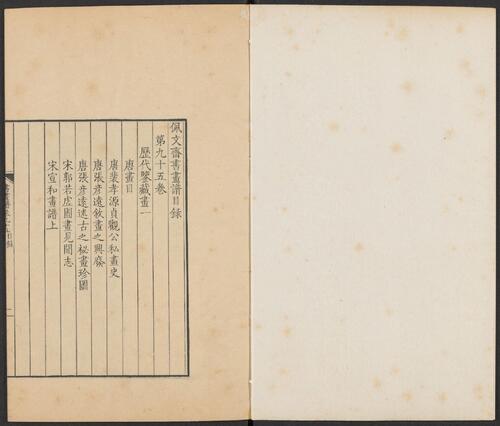 佩文齋書畫譜目錄
第九十五卷
歷代鑒藏畫一
唐畫目
唐裴孝源貞觀公私畫史
唐張彥遠敘畫之興廢
唐張彥遠述古之秘畫珍圖
宋郭若虛圖畫見聞志
宋宣和畫譜上